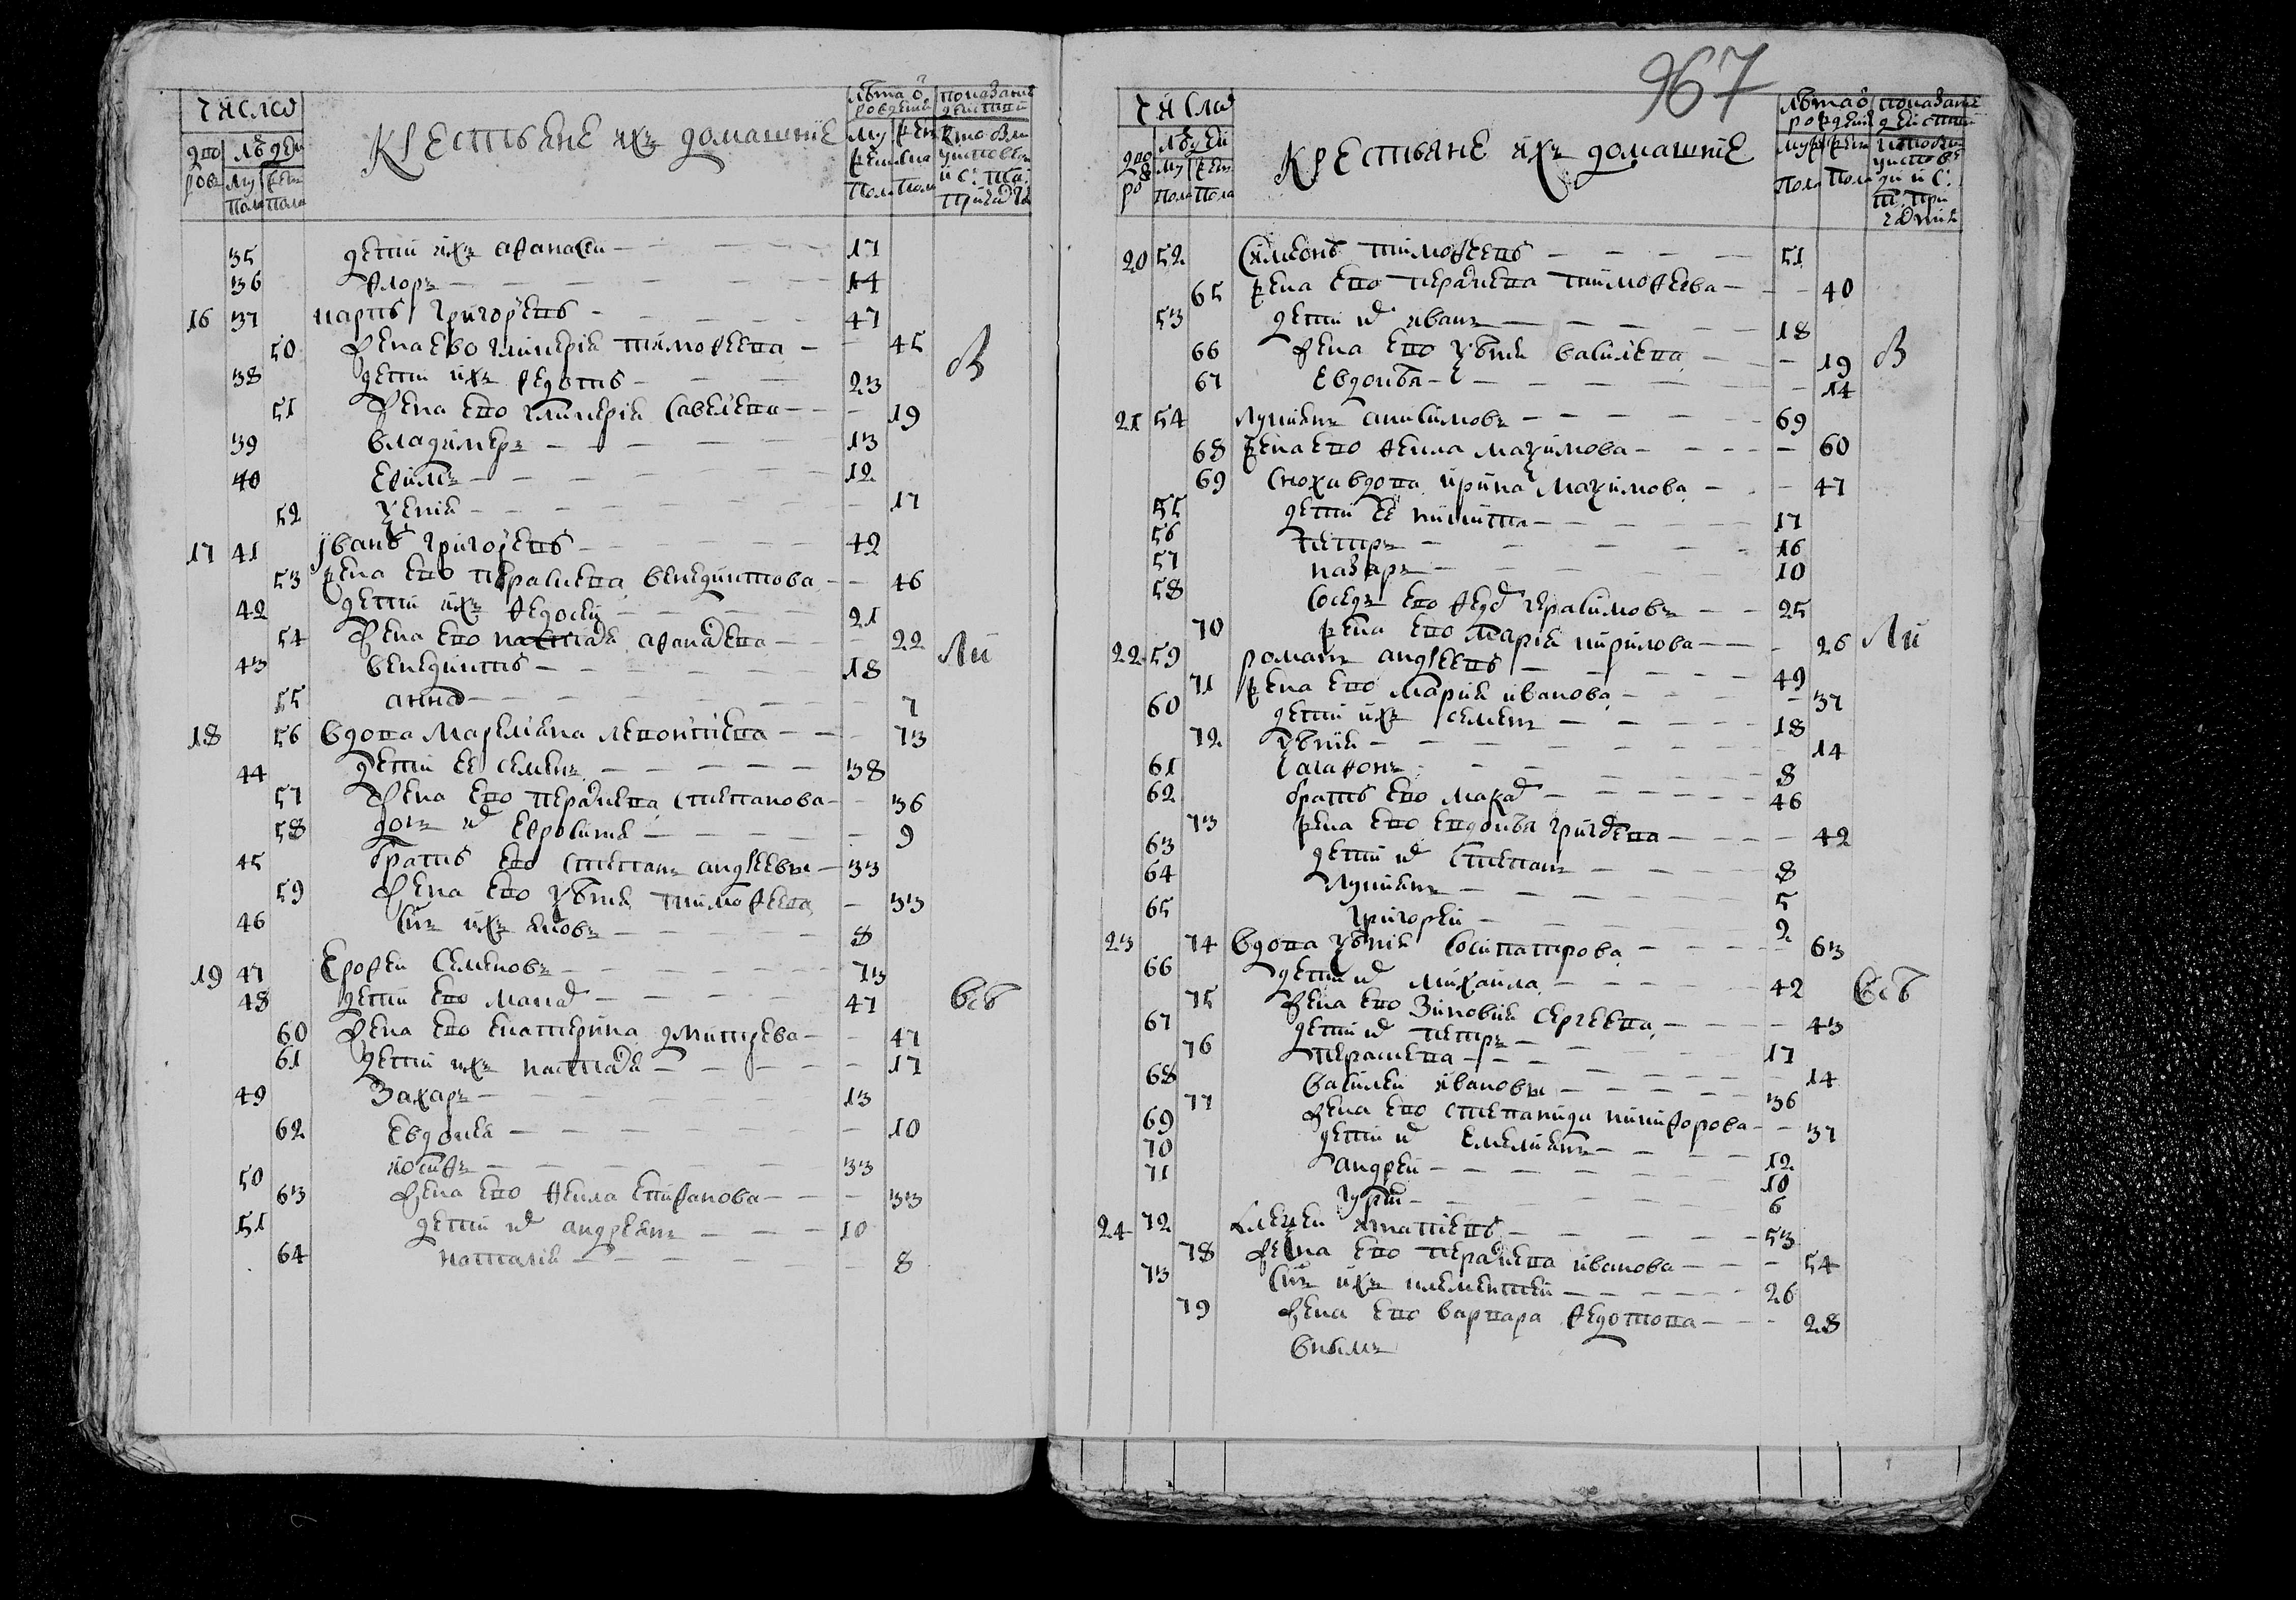 967
Числа
дво ров
людей
му пола
жен пола
Крестьяне их домашние
лета от рождения
му жеска пола
жен пола
показание действ
кто был у исповеди и с: та: причастия
35 дети их афанасеи 17
36 флор 14
16 37 карп григорьев 47
50 жена ево гликерия тимофеева 45
38 дети их федот 23
51 жена ево гликерия савельева 19
39 владимер 13
40 ефим 12
52 ксения 17
17 41 иван григорьев 42
53 жена ево параскева венедиктова 46
42 дети их федосеи 21
54 жена ево настасья афанасева 22
43 венедикт 18
55 анна 7
18 56 вдова маремьяна леонтиева 73
44 дети ее семен 38
57 жена ево параскева степанова 36
58 дочь их ефросиния 9
45 брат ево степан андреевы 33
59 жена ево устиния тимофеева 33
46 сын их яков 8
19 47 ерофеи семенов 73
48 дети ево макар 47
60 жена ево екатерина дмитриева 47
61 дети их настасья 17
49 захар 13
62 евдокея 10
50 иосиф 33
63 жена ево фекла епифанова 33
51 дети их андреян 10
64 наталия 8
В
Ли
Всѣ
Числа
дво ро
людей
му пола
жен пола
Крестьяне их домашние
лета от рождения
муж пола
жен пола
показание действ
исповеди и с: т: при
20 52 симеон тимофеев 51
65 жена ево параскева тимофеева 40
53 дети их иван 18
66 жена ево устиния васильева 19
67 евдокея 14
21 54 лукиян анисимов 69
68 жена ево фекла максимова 60
69 сноха вдова ирина максимова 47
55 дети ее никита 17
56 петр 16
57 назар 10
58 сосед ево федор герасимов 25
70 жена ево мария кирилова 26
22 59 роман андреев 49
71 жена ево мария иванова 37
60 дети их семен 18
72 устиния 14
61 агафон 8
62 брат ево макар 46
73 жена ево евдокея григорева 42
63 дети их степан 8
64 лукиян 5
65 григореи 2
23 74 вдова устиния сосипатрова 63
66 дети ея михаила 42
75 жена ево зиновия сергеева 43
67 дети их петр 17
76 параскева 14
68 василеи ивановы 36
77 жена ево степанида никифорова 37
69 дети их емелиян 12
70 андреи 10
71 гурии 6
24 72 алексеи игнатиев 53
78 жена ево параскева иванова 54
73 сын их клементеи 26
79 жена ево варвара федотова 28
В
Ли
Всѣ